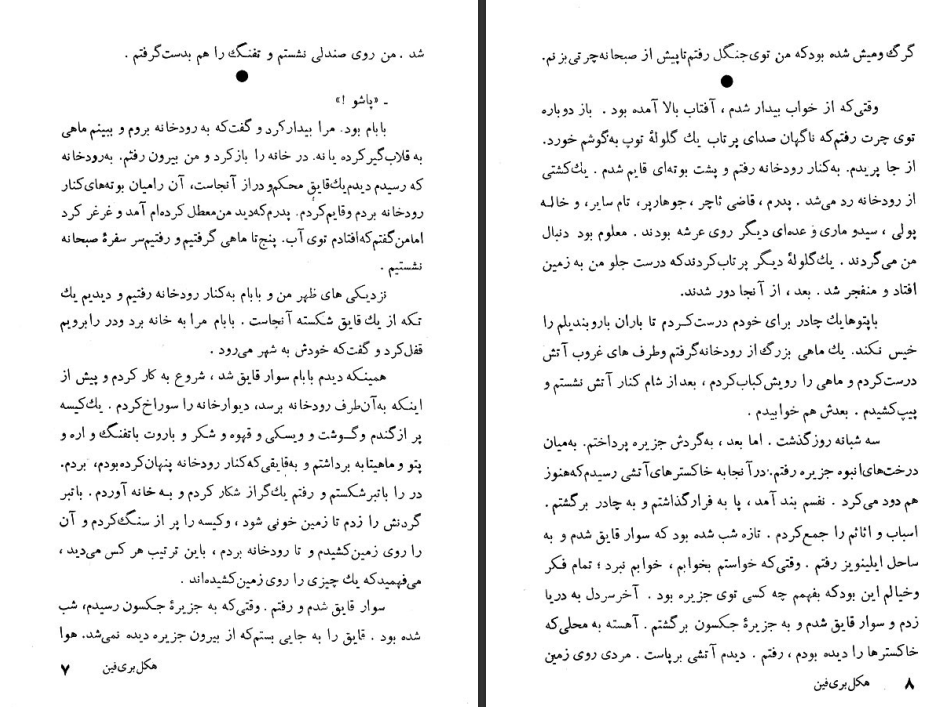 شد . من روی صندلی نشستم و تفنگ را هم بدست گرفتم .
●
ـ «پاشو !»
بابام بود. مرا بیدار کرد و گفت که به رودخانه بروم و ببینم ماهی
به قلاب گیر کرده یا نه. در خانه را باز کرد و من بیرون رفتم. به رودخانه
که رسیدم دیدم یك قایق محکم و دراز آنجاست، آن را میان بوته‌های کنار
رودخانه بردم و قایم کردم. پدرم که دید من معطل کرده‌ام آمد و غرغر کرد
اما من گفتم که افتادم توی آب. پنج تا ماهی گرفتیم و رفتیم سر سفرهٔ صبحانه
نشستیم .
نزدیکی های ظهر من و بابام به کنار رودخانه رفتیم و دیدیم یك
تکه از یك قایق شکسته آنجاست . بابام مرا به خانه برد و در را برویم
قفل کرد و گفت که خودش به شهر می‌رود .
همینکه دیدم بابام سوار قایق شد ، شروع به کار کردم و پیش از
اینکه به آن طرف رودخانه برسد، دیوار خانه را سوراخ کردم . یك کیسه
پر از گندم و گوشت و ویسکی و قهوه و شکر و باروت با تفنگ و اره و
پتو و ماهیتابه برداشتم و به قایقی که کنار رودخانه پنهان کرده بودم، بردم.
در را با تبر شکستم و رفتم یك گراز شکار کردم و به خانه آوردم . با تبر
گردنش را زدم تا زمین خونی شود ، و کیسه را پر از سنگ کردم و آن
را روی زمین کشیدم و تا رودخانه بردم ، باین ترتیب هر کس می‌دید ،
می‌فهمید که یك چیزی را روی زمین کشیده‌اند .
سوار قایق شدم و رفتم . وقتی که به جزیرهٔ جکسون رسیدم، شب
شده بود . قایق را به جایی بستم که از بیرون جزیره دیده نمی‌شد. هوا
هکل بری فین ۷
گرگ و میش شده بود که من توی جنگل رفتم تا پیش از صبحانه چرتی بزنم.
●
وقتی که از خواب بیدار شدم ، آفتاب بالا آمده بود . باز دوباره
توی چرت رفتم که ناگهان صدای پرتاب یك گلولهٔ توپ به گوشم خورد.
از جا پریدم. به کنار رودخانه رفتم و پشت بوته‌ای قایم شدم . یك کشتی
از رودخانه رد می‌شد . پدرم ، قاضی ثاچر ، جوهارپر، تام سایر، و خاله
پولی ، سیدو ماری و عده‌ای دیگر روی عرشه بودند . معلوم بود دنبال
من می‌گردند . یك گلولهٔ دیگر پرتاب کردند که درست جلو من به زمین
افتاد و منفجر شد . بعد ، از آنجا دور شدند.
با پتوها یك چادر برای خودم درست کردم تا باران بار و بندیلم را
خیس نکند. یك ماهی بزرگ از رودخانه گرفتم و طرف های غروب آتش
درست کردم و ماهی را رویش کباب کردم ، بعد از شام کنار آتش نشستم و
پیپ کشیدم . بعدش هم خوابیدم .
سه شبانه روز گذشت . اما بعد ، به گردش جزیره پرداختم. به میان
درخت‌های انبوه جزیره رفتم. در آنجا به خاکسترهای آتشی رسیدم که هنوز
هم دود می‌کرد . نفسم بند آمد ، پا به فرار گذاشتم و به چادر برگشتم .
اسباب و اثاثم را جمع کردم . تازه شب شده بود که سوار قایق شدم و به
ساحل ایلینویز رفتم . وقتی که خواستم بخوابم ، خوابم نبرد ؛ تمام فکر
و خیالم این بود که بفهمم چه کسی توی جزیره بود . آخر سر دل به دریا
زدم و سوار قایق شدم و به جزیرهٔ جکسون برگشتم . آهسته به محلی که
خاکسترها را دیده بودم ، رفتم . دیدم آتشی برپاست . مردی روی زمین
۸ هکل بری فین